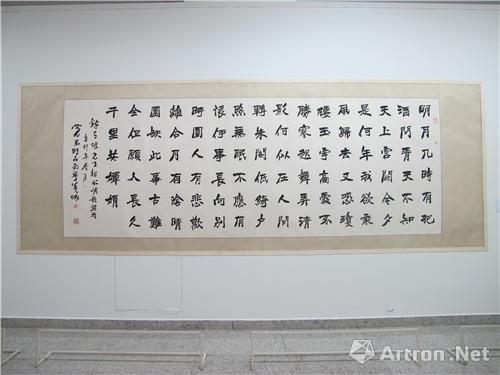 明月几時有把
酒問青天不知
天上宮闕今夕
是何年我欲乘
風歸去又恐瓊
樓玉宇高處不
勝寒起舞弄清
影何似在人間
轉朱閣低綺户
照無眠不應有
恨何事長向別
時圓人有悲歡
離合月有陰晴
圓缺此事古難
全但願人長久
千里共嬋娟
Artron.Net